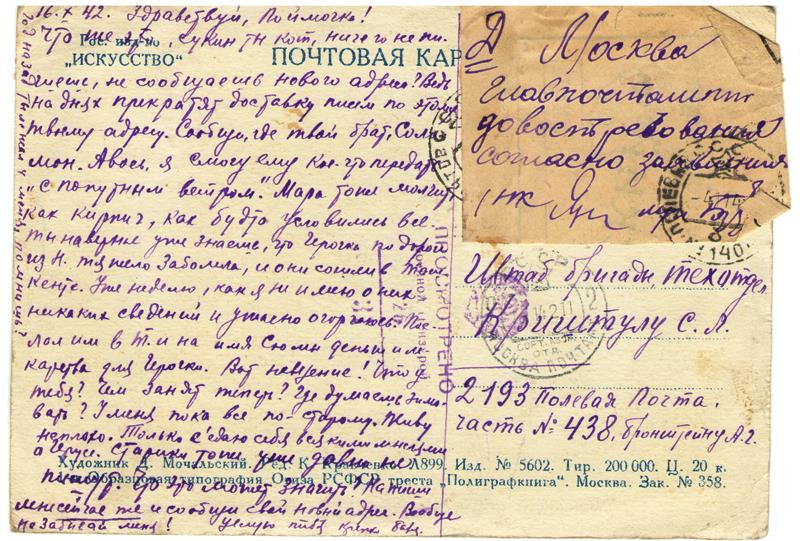 16.X.42. Здравствуй, Поймочка!
Что же ты, сукин ты кот, ничего не пи-
Гос. изд-во
„ИСКУССТВО“
ПОЧТОВАЯ КАР
шешь, не сообщаешь нового адреса? Ведь
на днях прекратят доставку писем по этому
твоему адресу. Сообщи, где твой брат, Соло-
мон. Авось, я смогу ему кое-что передать
„с попутным ветром“. Мара тоже молчит
как кирпич, как будто условились все.
Ты наверное уже знаешь, что Герочка по дороге
из Н. тяжело заболела, и они сошли в Таш-
кенте. Уже неделю, как я не имею о них
никаких сведений и ужасно огорчаюсь. Пос-
лал им в Т. и на имя Сюмы деньги и ле-
карства для Герочки. Вот невезение! Что у
тебя? Чем занят теперь? Где думаешь зимо-
вать? У меня пока все по старому. Живу
неплохо. Только съедаю себя всякими мыслями
о Старики тоже уже давно не
пишут. Что это может значить? Напиши
мне сейчас же и сообщи свой новый адрес. Вообще
не забывай меня! Целую тебя крепко
Год назад ты у меня помнишь?
Художник Д. Мочальский. Ред. К. Л899. Изд. № 5602. Тир. 200 000. Ц. 20 к.
Образцовая типография Огиза РСФСР треста „Полиграфкнига“. Москва. Зак. № 358.
ПРОСМОТРЕНО
Военной Цензурой
Д Москва
Главпочтамт
до востребования
согласно заявления
Штаб бригады, техотдел
2193 Полевая Почта.
часть № 438, Бронштейну А.Г.
МОСКВА ПОЧТАМТ